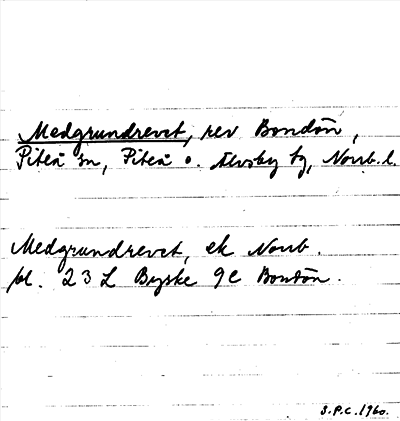 Medgrundrevet, rev Bondön,
Piteå sn, Piteå o. Älvsby tg, Norrb. l.
Medgrundrevet, ek Norrb.
bl. 23 L Byske 9c Bondön.
S.P.C. 1960.